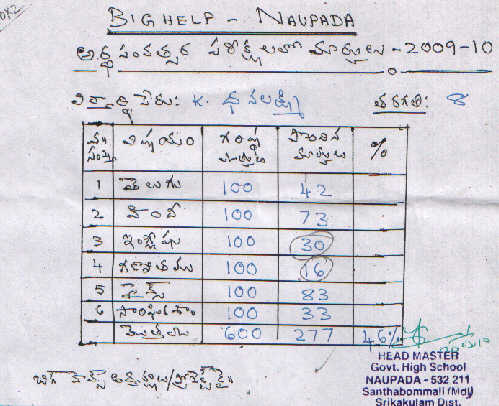 BIG HELP - NAUPADA
అర్ధ సంవత్సర పరీక్షలలో మార్కులు - 2009-10
విద్యార్థి పేరు: K. ధనలక్ష్మి తరగతి: 8
వ.సంఖ్య విషయం గరిష్ఠ మార్కులు పొందిన మార్కులు %
1 తెలుగు 100 42
2 హిందీ 100 73
3 ఇంగ్లీషు 100 30
4 గణితము 100 16
5 సైన్స్ 100 83
6 సాంఘికశాస్త్రం 100 33
మొత్తం 600 277 46%
HEAD MASTER
Govt. High School
NAUPADA - 532 211
Santhabommali (Mdl)
Srikakulam Dist.